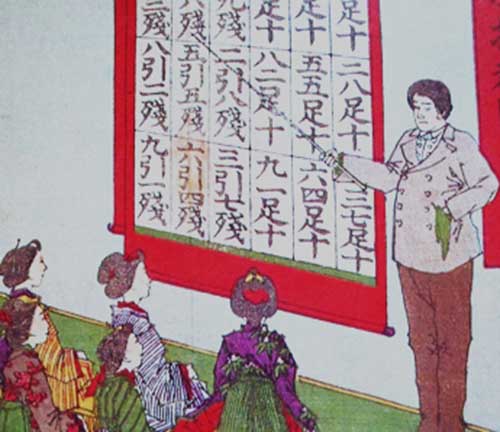 足十 二八足十 三七足十
足十 五五足十 六四足十
足十 八二足十 九一足十
九殘 二引八殘 三引七殘
六殘 五引五殘 六引四殘
三殘 八引二殘 九引一殘